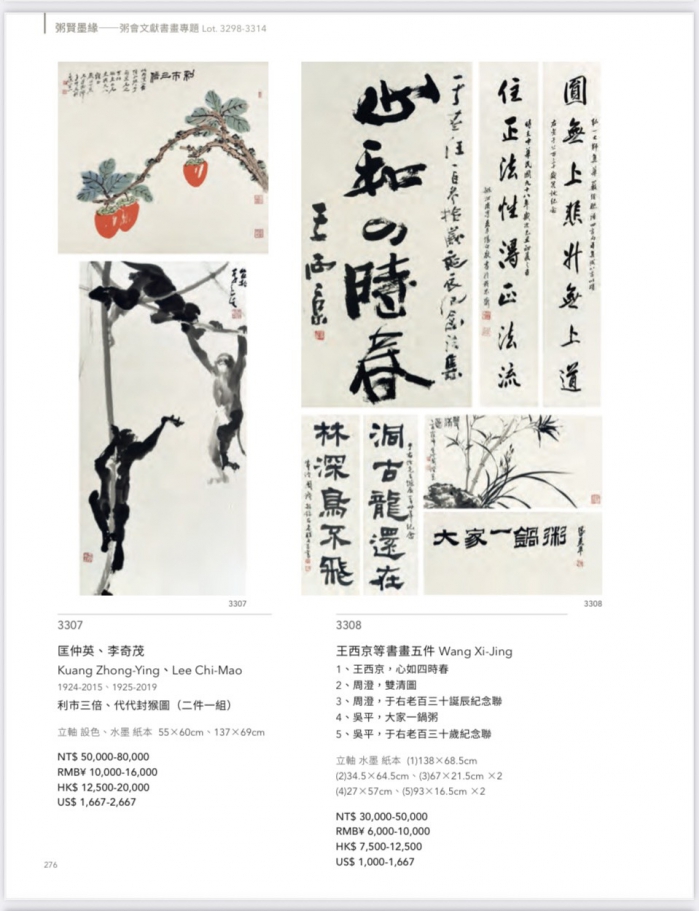 粥賢墨緣——粥會文獻書畫專題 Lot. 3298-3314
利市三倍
心如四時春
王西京
圓無上悲升無上道
住正法性正法流
洞古龍還在
林深鳥不飛
大家一鍋粥
3307
3308
3307
匡仲英、李奇茂
Kuang Zhong-Ying、Lee Chi-Mao
1924-2015、1925-2019
利市三倍、代代封猴圖（二件一組）
立軸 設色、水墨 紙本 55×60cm、137×69cm
NT$ 50,000-80,000
RMB¥ 10,000-16,000
HK$ 12,500-20,000
US$ 1,667-2,667
3308
王西京等書畫五件 Wang Xi-Jing
1、王西京，心如四時春
2、周澄，雙清圖
3、周澄，于右老百三十誕辰紀念聯
4、吳平，大家一鍋粥
5、吳平，于右老百三十歲紀念聯
立軸 水墨 紙本 (1)138×68.5cm
(2)34.5×64.5cm、(3)67×21.5cm ×2
(4)27×57cm、(5)93×16.5cm ×2
NT$ 30,000-50,000
RMB¥ 6,000-10,000
HK$ 7,500-12,500
US$ 1,000-1,667
276